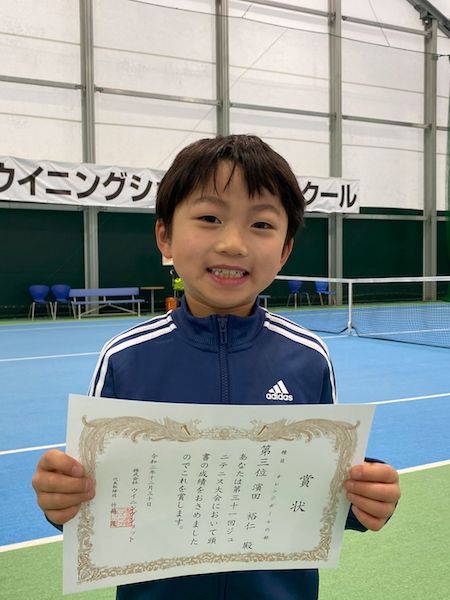 ウイニングシ
クール
adidas
賞状
種目 チャレンジボールの部
第三位 濱田 裕仁 殿
あなたは第三十一回ジュ
ニテニス大会において頭
書の成績をおさめました
のでこれを賞します。
令和二年十二月三十日
株式会社 ウイニングショット
代表取締役